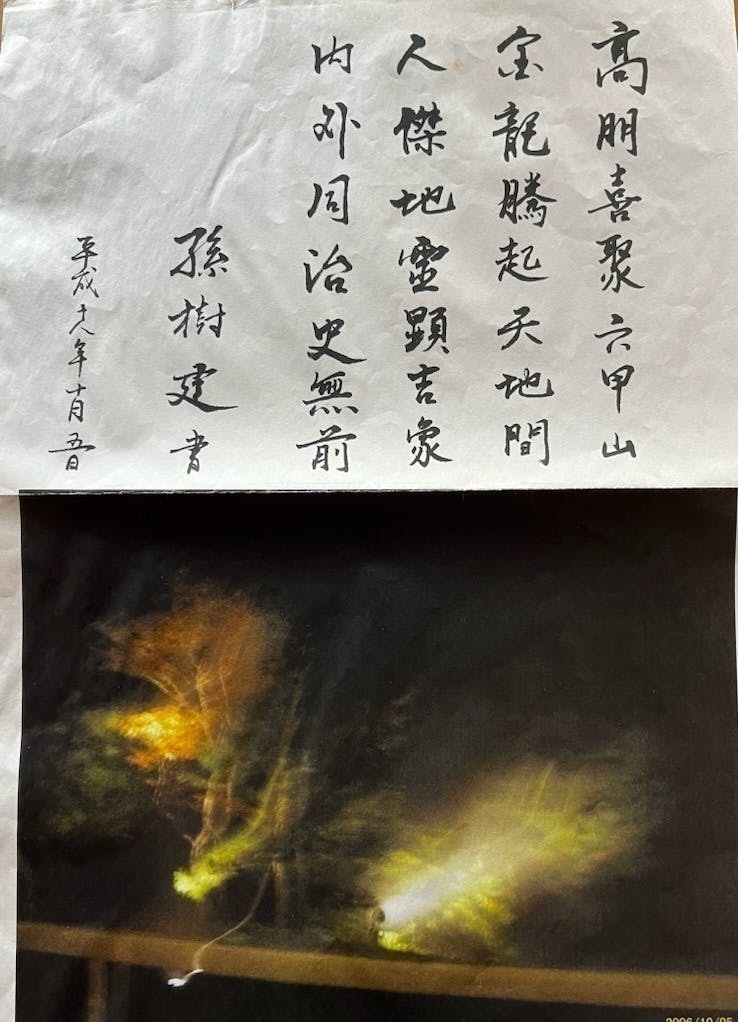 高朋喜聚六甲山
宝龍騰起天地間
人傑地霊顕吉象
内外同治史無前
孫樹建書
平成十八年十月五日
2006/10/05